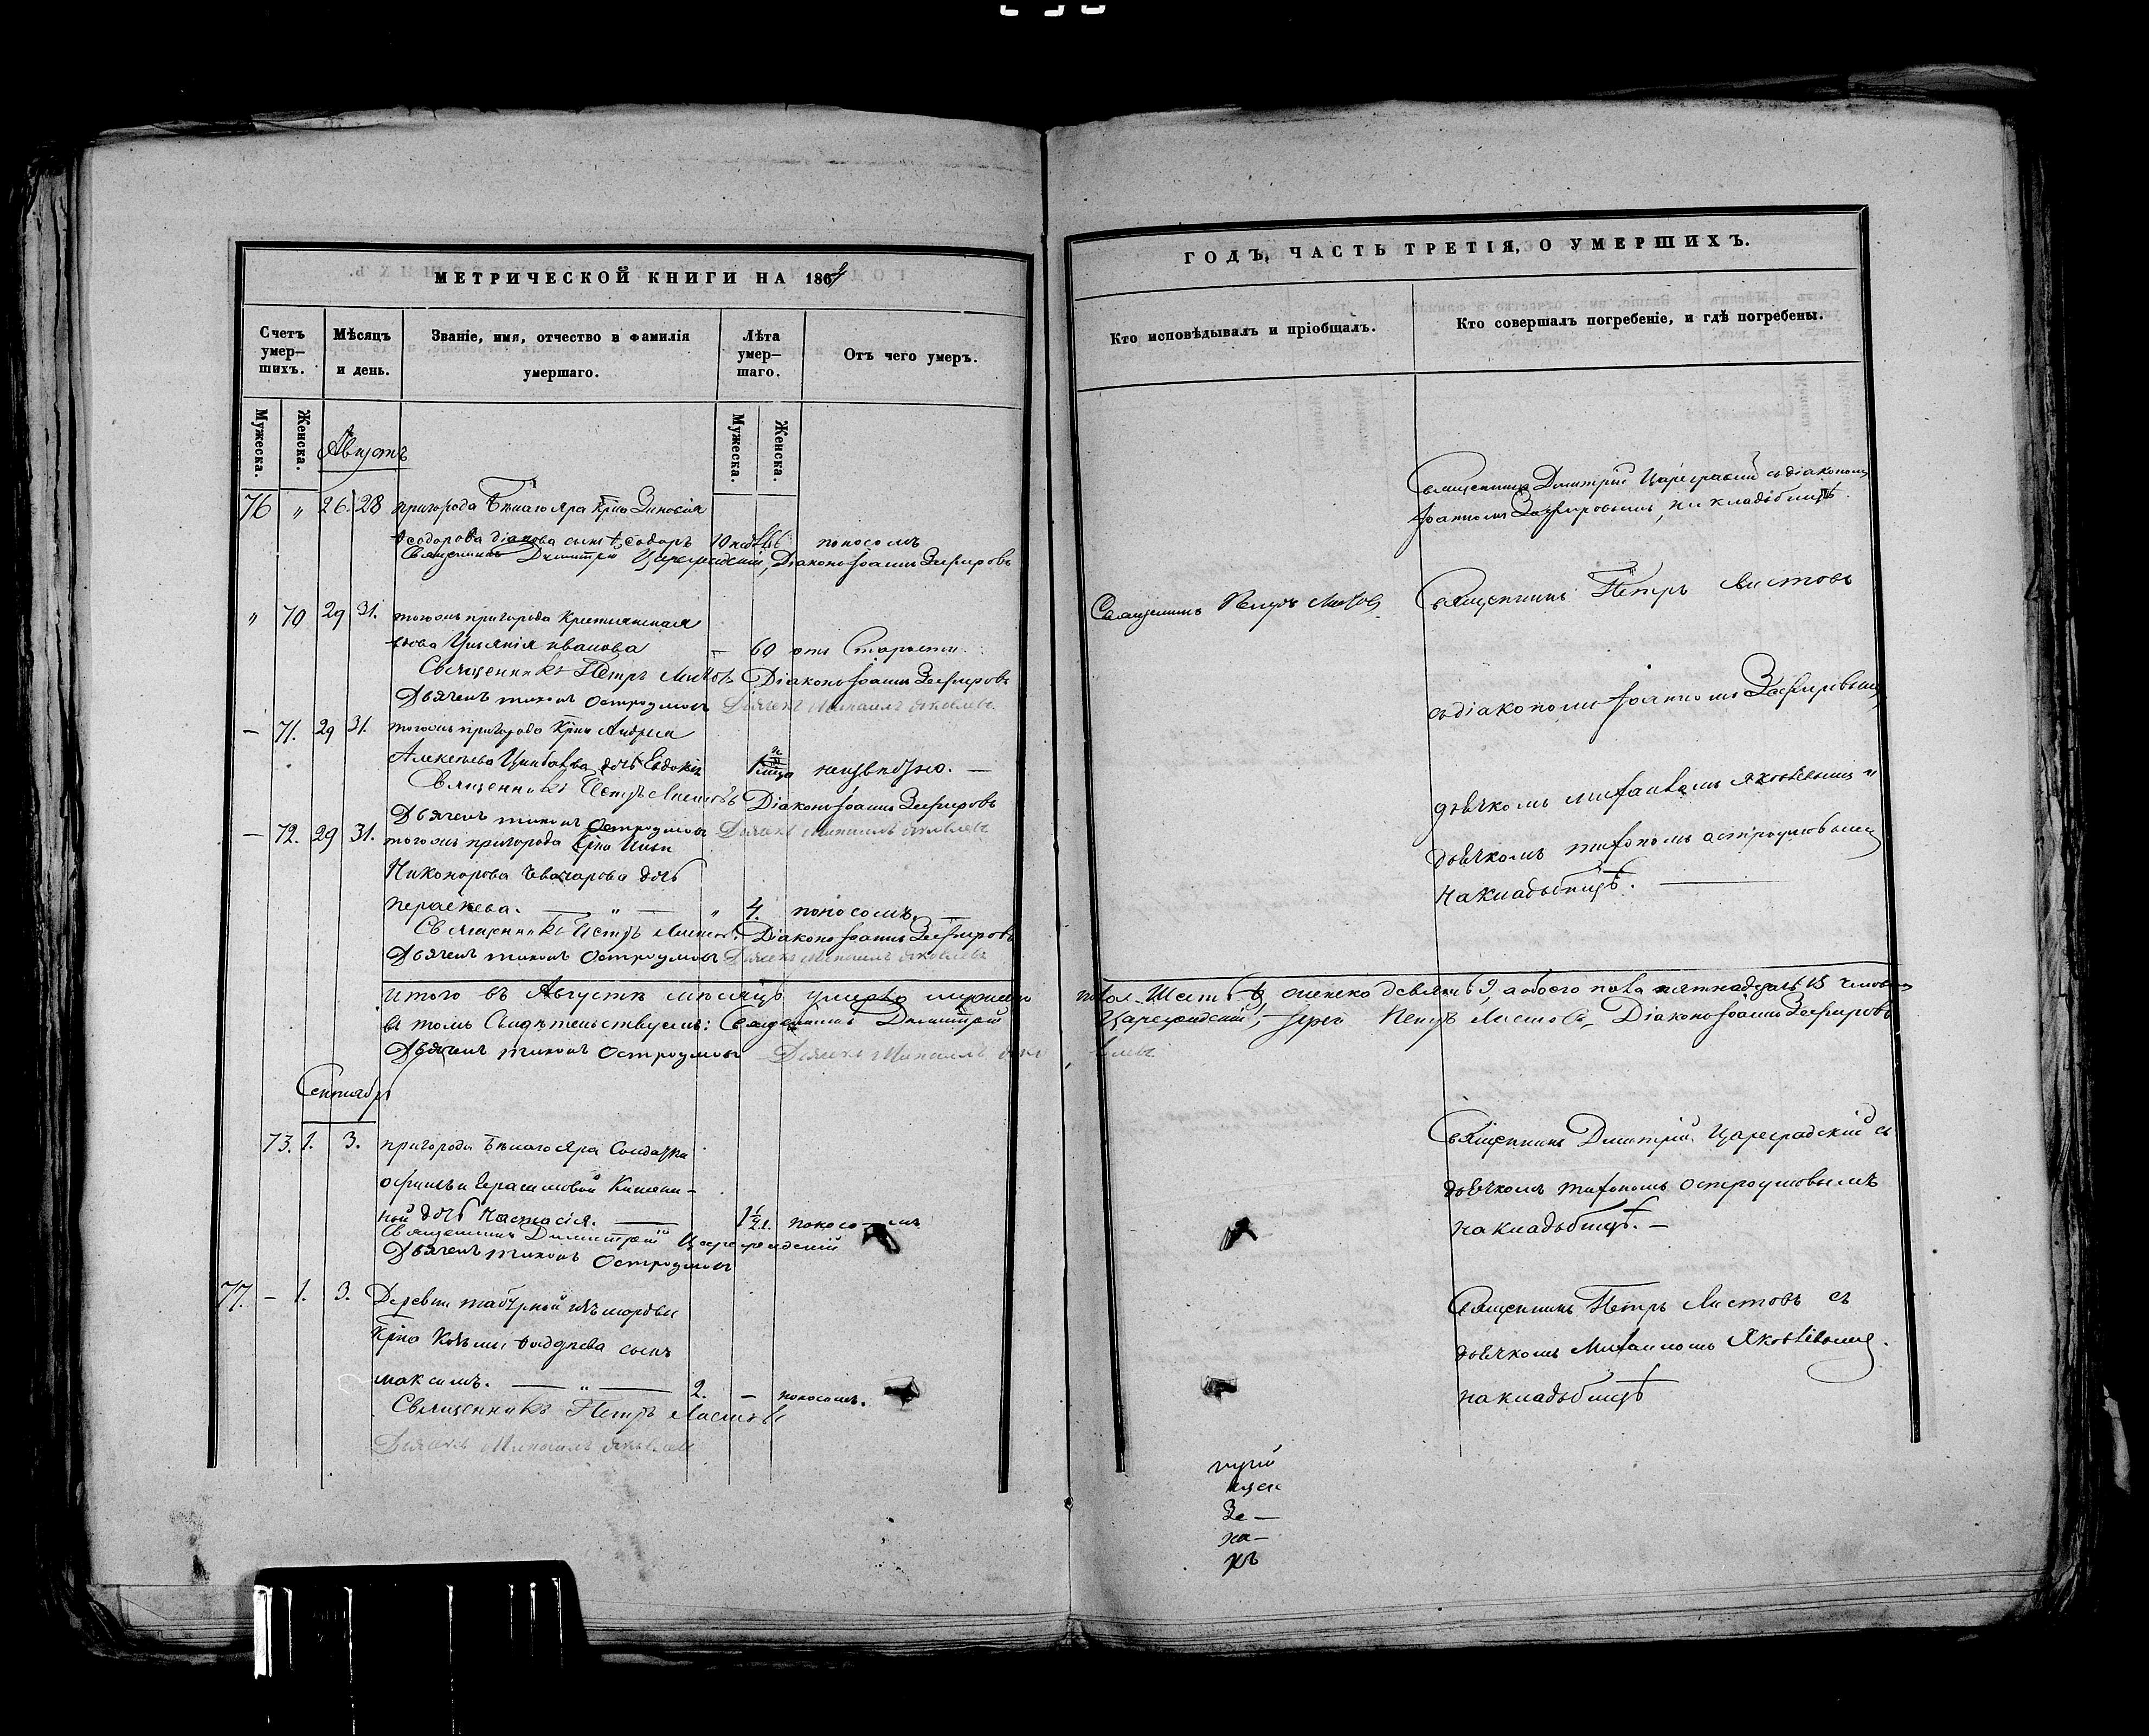 МЕТРИЧЕСКОЙ КНИГИ НА 1864
Счетъ умер-шихъ.
Мѣсяцъ и день.
Званіе, имя, отчество и фамилія умершаго.
Лѣта умер-шаго.
Отъ чего умеръ.
Мужеска.
Женска.
Мужеска.
Женска.
Августъ
76 " 26. 28 пригорода Бѣлаго Яра Крна Зиновія
Ѳеодорова сынъ Ѳеодоръ поносомъ
Священникъ Димитрій Цареградскій, Діаконъ Іоаннъ Зефировъ
" 70 29 31. тогожъ пригорода Крестьянская
вдова Иванова — 60 отъ Старости
Священникъ Петръ Листовъ Діаконъ Іоаннъ Зефировъ
Дьячекъ Тихонъ Остроумовъ Дьячекъ Михаилъ Яковлевъ
— 71. 29 31. тогожъ пригорода Крна Андрея
Алексѣева дочь Евдокія неизвѣстно. —
Священникъ Петръ Листовъ Діаконъ Іоаннъ Зефировъ
Дьячекъ Тихонъ Остроумовъ Дьячекъ Михаилъ Яковлевъ
— 72. 29 31. тогожъ пригорода Крна Ильи
Никонорова дочь
Параскева. — " — " 4. поносомъ. —
Священникъ Петръ Листовъ. Діаконъ Іоаннъ Зефировъ
Дьячекъ Тихонъ Остроумовъ Дьячекъ Михаилъ Яковлевъ
Итого въ Августѣ мѣсяцѣ умерло мужеска
въ томъ Свидѣтельствуемъ: Священникъ Димитрій
Дьячекъ Тихонъ Остроумовъ Дьячекъ Михаилъ Яко
Сентябрь
73. 1. 3. пригорода Бѣлаго Яра Солдатки
Герасимовой
ной дочь Настасія. — 1½ поносомъ
Священникъ Димитрій Цареградскій
Дьячекъ Тихонъ Остроумовъ
77. — 1. 3. Деревни
Крна Козьмы сынъ
Максимъ. — " — 2. — поносомъ.
Священникъ Петръ Листовъ
Дьячекъ Михаилъ Яковлевъ
ГОДЪ, ЧАСТЬ ТРЕТІЯ, О УМЕРШИХЪ.
Кто исповѣдывалъ и пріобщалъ.
Кто совершалъ погребеніе, и гдѣ погребены.
Священникъ Димитрій Цареградскій съ діакономъ
Іоанномъ Зефировымъ, на кладбищѣ.
Священникъ Петръ Листовъ
Священникъ Петръ Листовъ
съ діакономъ Іоанномъ Зефировымъ,
дьячкомъ Михаиломъ Яковлевымъ и
дьячкомъ Тихономъ Остроумовымъ
на кладбищѣ. —
пола Шесть 6, женско девять 9, а обоего пола пятнадцать 15 человѣкъ
Цареградскій, Іерей Петръ Листовъ, Діаконъ Іоаннъ Зефировъ
влевъ
Священникъ Димитрій Цареградскій съ
дьячкомъ Тихономъ Остроумовымъ
на кладбищѣ. —
Священникъ Петръ Листовъ съ
дьячкомъ Михаиломъ Яковлевымъ.
на кладбищѣ
Зе —
на —